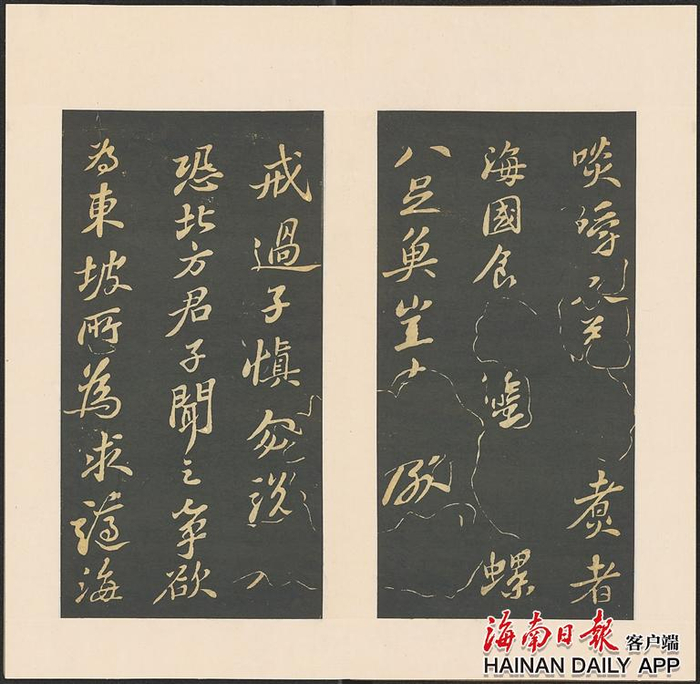 啖嚼又益煮者
海國食蟹螺
八足魚豈
戒過子慎勿說
恐北方君子聞之爭欲
為東坡所為求謫海
海南日报客户端
HAINAN DAILY APP